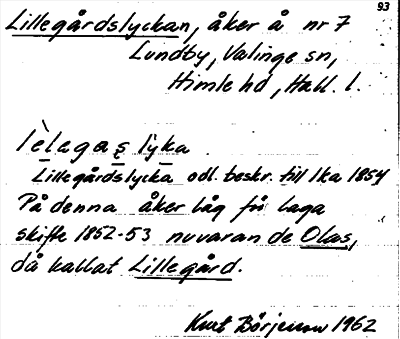 93
Lillegårdslyckan, åker å nr 7
Lundby, Valinge sn,
Himle hd, Hall. l.
lèlagaslyka
Lillegårdslycka odl. beskr. till lka 1854
På denna åker låg före laga
skifte 1852-53 nuvaran de Olas,
då kallat Lillegård.
Kurt Börjesson 1962